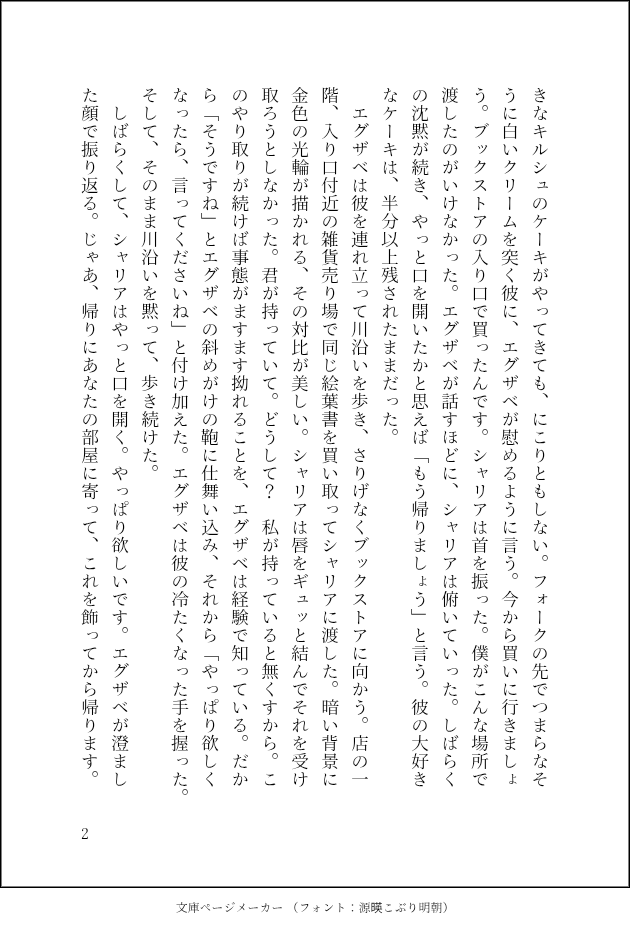 きなキルシュのケーキがやってきても、にこりともしない。フォークの先でつまらなそ
うに白いクリームを突く彼に、エグザベが慰めるように言う。今から買いに行きましょ
う。ブックストアの入り口で買ったんです。シャリアは首を振った。僕がこんな場所で
渡したのがいけなかった。エグザベが話すほどに、シャリアは俯いていった。しばらく
の沈黙が続き、やっと口を開いたかと思えば「もう帰りましょう」と言う。彼の大好き
なケーキは、半分以上残されたままだった。
　エグザベは彼を連れ立って川沿いを歩き、さりげなくブックストアに向かう。店の一
階、入り口付近の雑貨売り場で同じ絵葉書を買い取ってシャリアに渡した。暗い背景に
金色の光輪が描かれる、その対比が美しい。シャリアは唇をギュッと結んでそれを受け
取ろうとしなかった。君が持っていて。どうして？　私が持っていると無くすから。こ
のやり取りが続けば事態がますます拗れることを、エグザベは経験で知っている。だか
ら「そうですね」とエグザベの斜めがけの鞄に仕舞い込み、それから「やっぱり欲しく
なったら、言ってくださいね」と付け加えた。エグザベは彼の冷たくなった手を握った。
そして、そのまま川沿いを黙って、歩き続けた。
　しばらくして、シャリアはやっと口を開く。やっぱり欲しいです。エグザベが澄まし
た顔で振り返る。じゃあ、帰りにあなたの部屋に寄って、これを飾ってから帰ります。
2
文庫ページメーカー（フォント：源暎こぶり明朝）